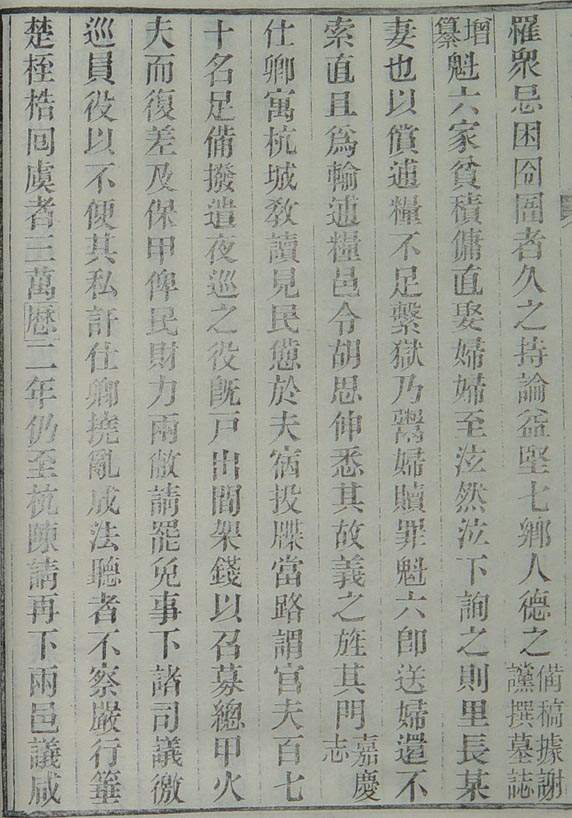 罹衆忌困囹圄者久之持論益堅七鄉人德之備稿據謝讜撰墓誌
增纂魁六家貧積傭直娶婦婦至泫然泣下詢之則里長某
妻也以償逋糧不足繫獄乃鬻婦贖罪魁六卽送婦還不
索直且爲輸逋糧邑令胡思伸悉其故義之旌其門嘉慶志
仕卿寓杭城敎讀見民憊於夫病投牒當路謂官夫百七
十名足備撥遣夜巡之役旣戸出間架錢以召募總甲火
夫而復差及保甲俾民財力兩敝請罷免事下諸司議徼
巡員役以不便其私訐仕卿撓亂成法聽者不察嚴行箠
楚桎梏囘虞者三萬曆二年仍至杭陳請再下兩邑議咸